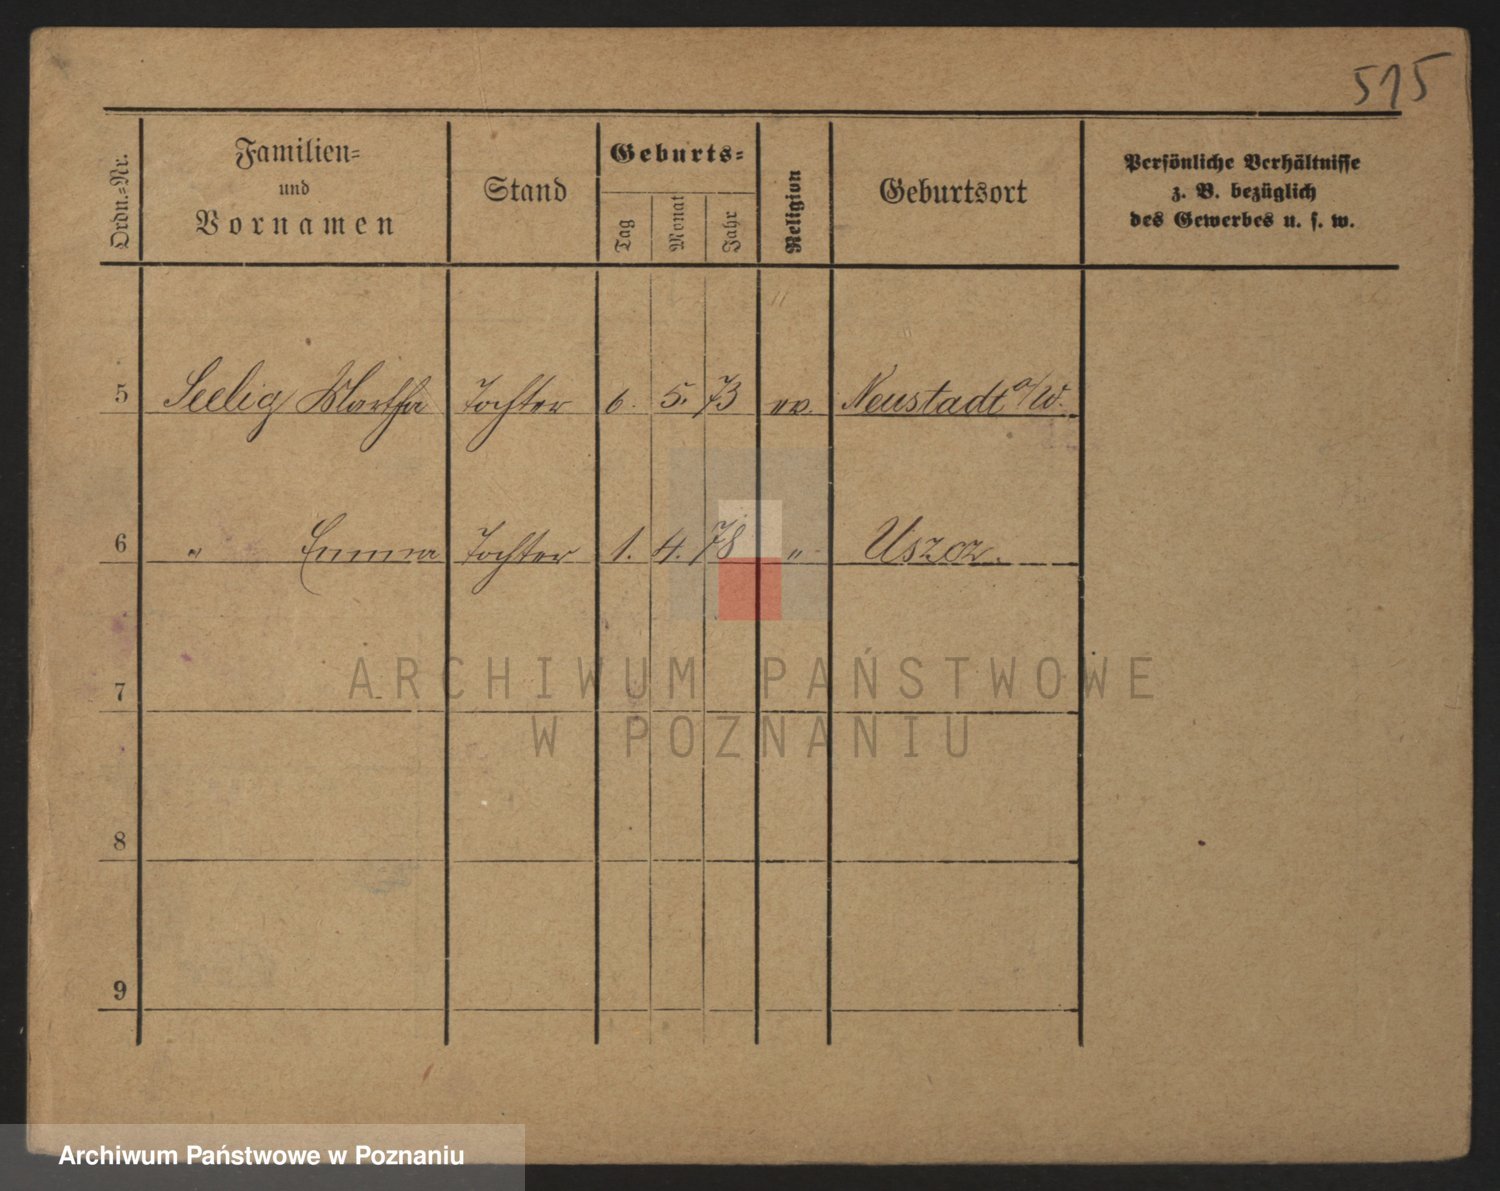 515
Ordn.=Nr.
Familien=
und
Vornamen
Stand
Geburts=
Tag
Monat
Jahr
Religion
Geburtsort
Persönliche Verhältnisse
z. B. bezüglich
des Gewerbes u. s. w.
5 Seelig Martha Tochter 6. 5. 73 ev. Neustadt a/W.
6 " Emma Tochter 1. 4. 78 "
7
8
9
ARCHIWUM PAŃSTWOWE
W POZNANIU
Archiwum Państwowe w Poznaniu